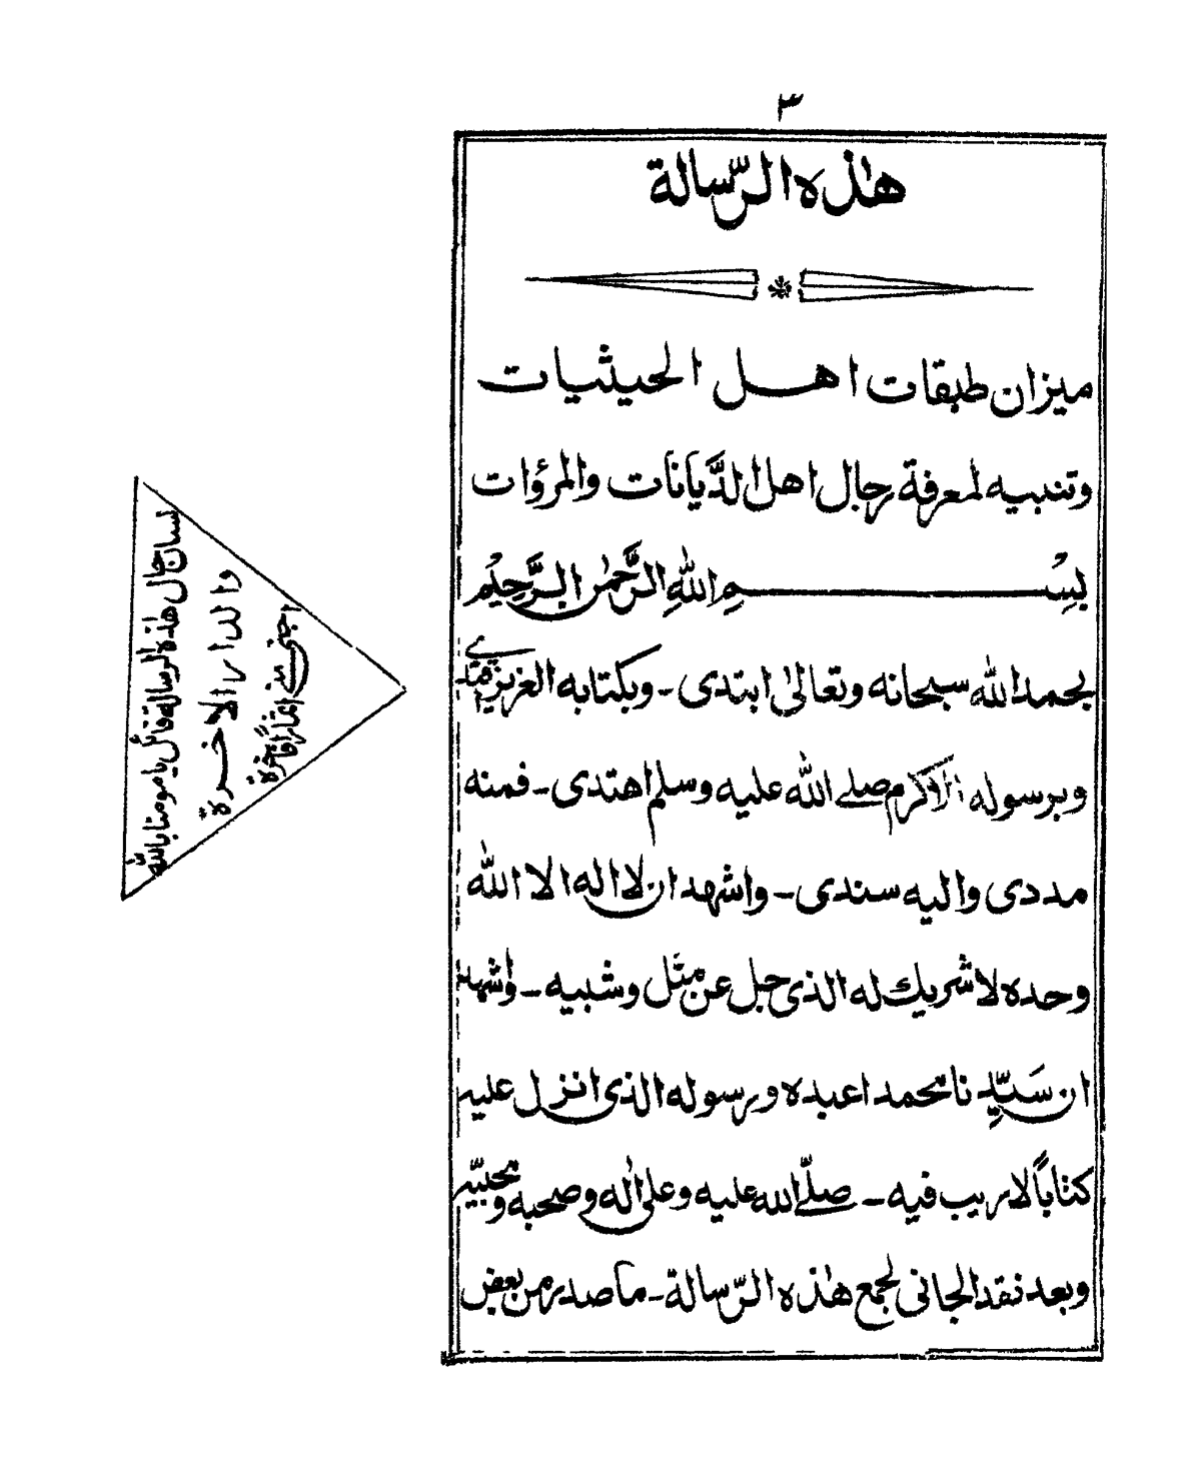 ٣
هٰذه الرّسالة
ميزان طبقات اهل الحيثيات
وتنبيه لمعرفة رجال اهل الدَّيانات والمرؤات
بِسْمِ اللهِ الرَّحمٰن الرَّحِيْم
بحمد الله سبحانه وتعالىٰ ابتدى ـ وبكتابه العزيز
وبرسوله الاكرم صلے الله عليه وسلم اهتدى ـ فمنه
مددى واليه سندى ـ واشهد ان لا اله الا الله
وحده لا شريك له الذى جل عن مثل وشبيه ـ واشهد
ان سَيّدِنا محمدا عبده ورسوله الذى انزل عليه
كتاباً لا ريب فيه ـ صلّے الله عليه وعلى اٰله وصحبه ومحبيّه
وبعد فقد الجانى لجمع هٰذه الرّسالة ـ ما صدر من بعض
لسان حال هٰذه الرسالة قائل يا مومنا بالله
والدار الاخرة
اجنى من اثمارا فاخرة